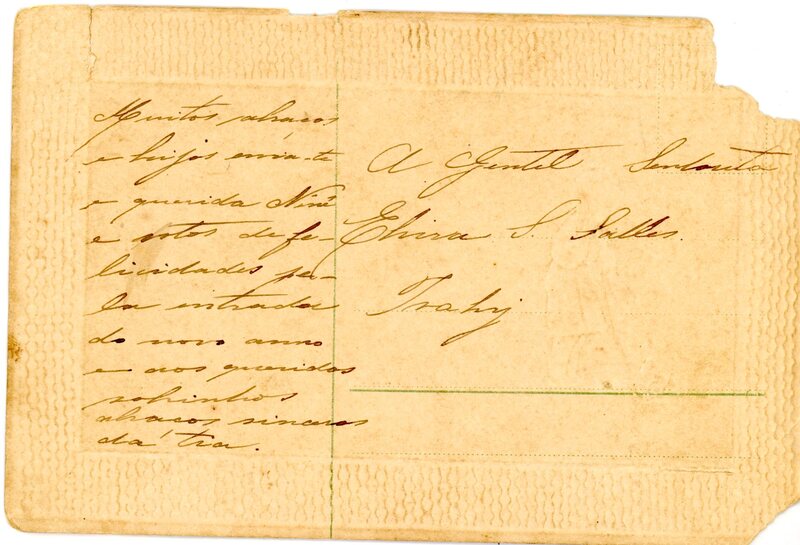 Muitos abraços
e bijos envia-te
e querida Niné
e votos de fe-
licidades pe-
la entrada
do novo anno
e aos queridos
sobinhos
abraços sinceros
da tia.
A Gentil Senhorita
Elvira S. Salles.
Irahy